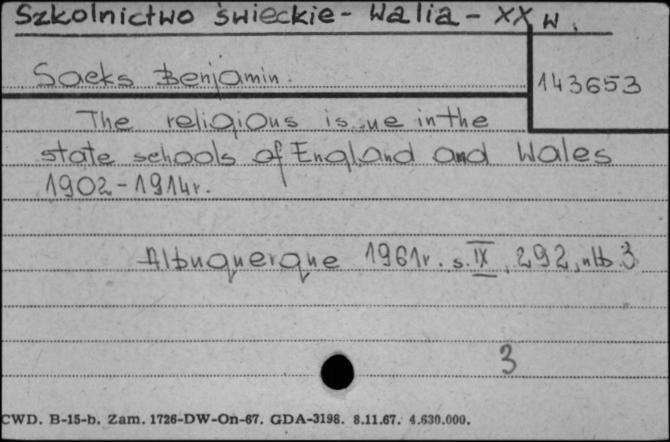 Szkolnictwo świeckie - Walia - XX w.
Sacks Benjamin.
143653
The religious issue in the
state schools of England and Wales
1902-1914r.
Albuquerque 1961r. s. IX, 292, nlb 3
3
CWD. B-15-b. Zam. 1726-DW-On-67. GDA-3198. 8.11.67. 4.630.000.